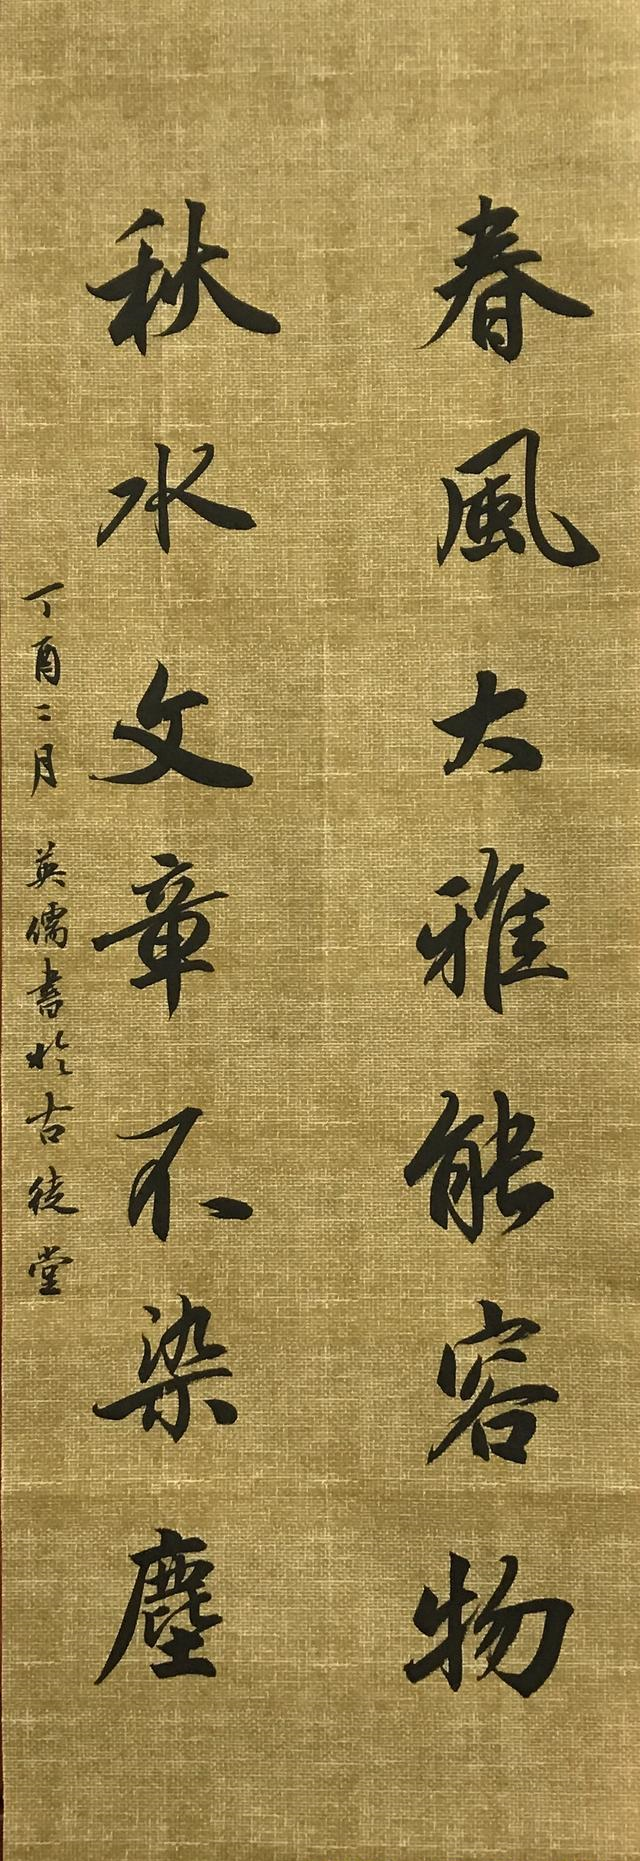 春風大雅能容物
秋水文章不染塵
丁酉二月 英儒書於古徒堂